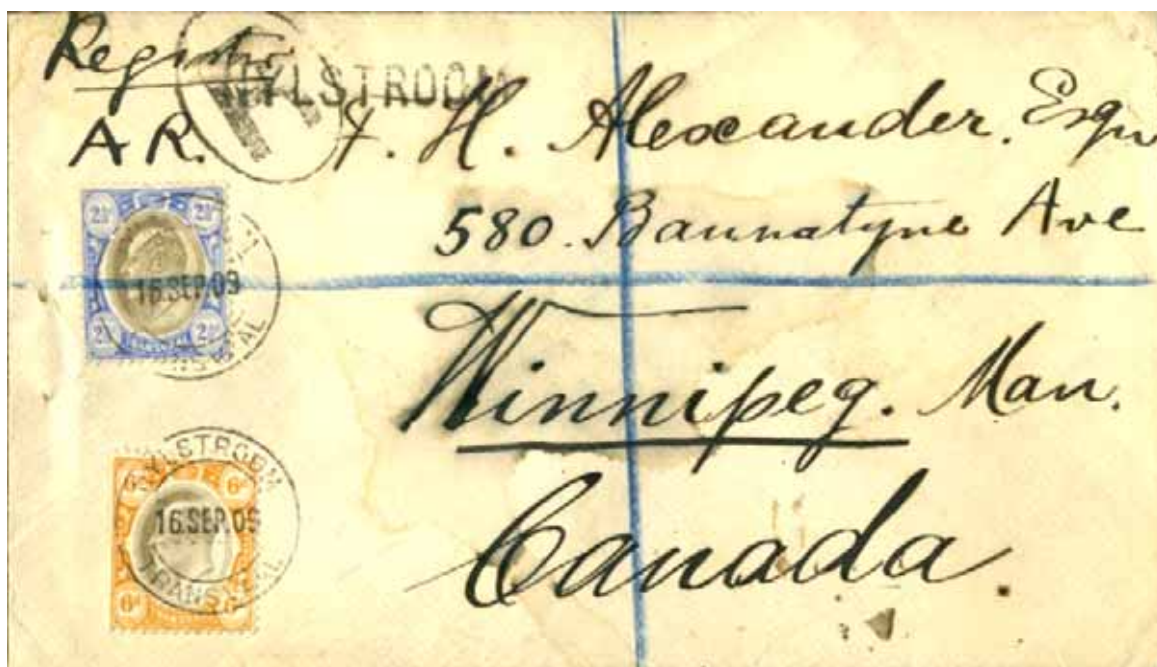 Registr
YLSTROOM
A R.
H. Alexander. Esqr
580. Bannatyne Ave
Winnipeg. Man.
Canada.
2½ 2½
16.SEP.09
2½ 2½
YLSTROOM
6d 6d
16.SEP.09
TRANS AL
6d 6d